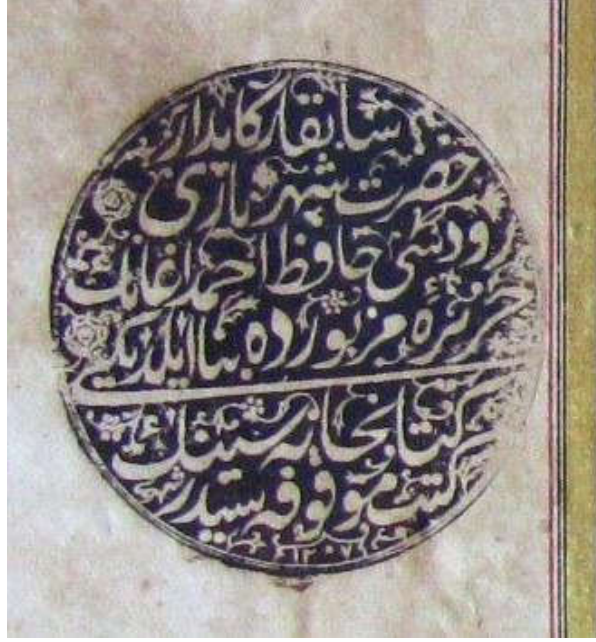 سابقا ركابدار
حضرت شهرياری
رودسی حافظ احمد اغانك
جزیرهٔ مزبورده بنا ایلدیكی
كتابخانه سننك
كتب موقوفه سیدر
١٢٠٧